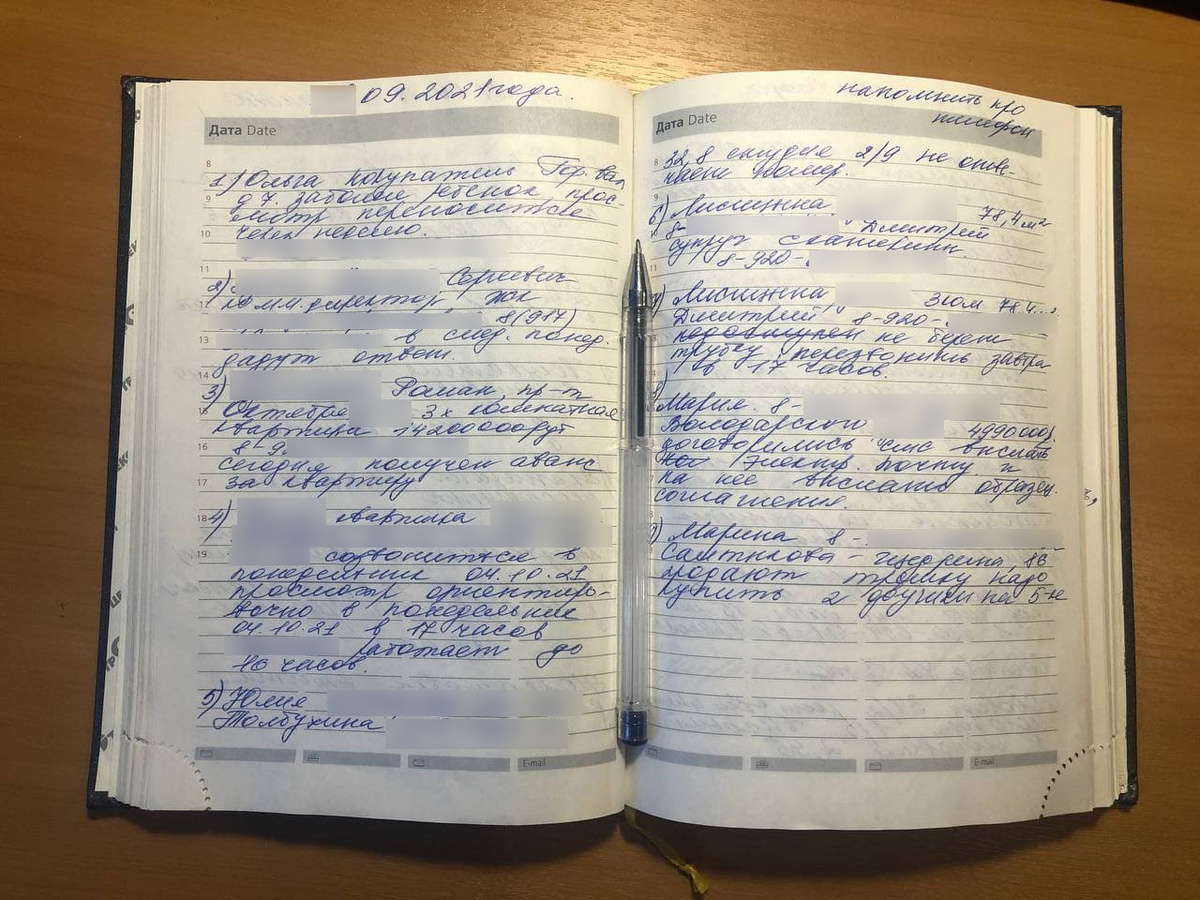 09.2021 года.
Дата Date
8
1) Ольга покупатель Гор. вал
д 7. заболел ребёнок прос-
9
мотр переносится
через неделю.
10
11
2) Сергеевич
ком. директор ЖК
12
8(917)
13
в след. понед.
дадут ответ.
14
3) Роман пр-т
Октября 3х комнатная
15
квартира 14200000 руб
16
8-9
сегодня получен аванс
за квартиру
17
18
4) квартира
19
созвониться в
понедельник 04.10.21
просмотр ориентиро-
вочно в понедельник
04.10.21 в 17 часов
работает до
16 часов.
5) Юлия
Толбухина
E-mail
напомнить про
телефон
Дата Date
8
32,8 студия 2/9 не отве-
чает номер.
9
6) Лисицына 78,4 м2
8- Дмитрий
супруг Екатерины
11
8-920-
7) Лисицына эт 78,4
Дмитрий 8-920-
недоступен не берет
трубку перезвонить завтра
в 17 часов.
8) Мария 8-
Володарского 4990000р.
договорились смс выслать
электр. почту и
на нее выслать образец
соглашения.
9) Марина 8-
Салтыкова-Щедрина, 86
продают тройку надо
купить 2 двушки на 5-ке
E-mail